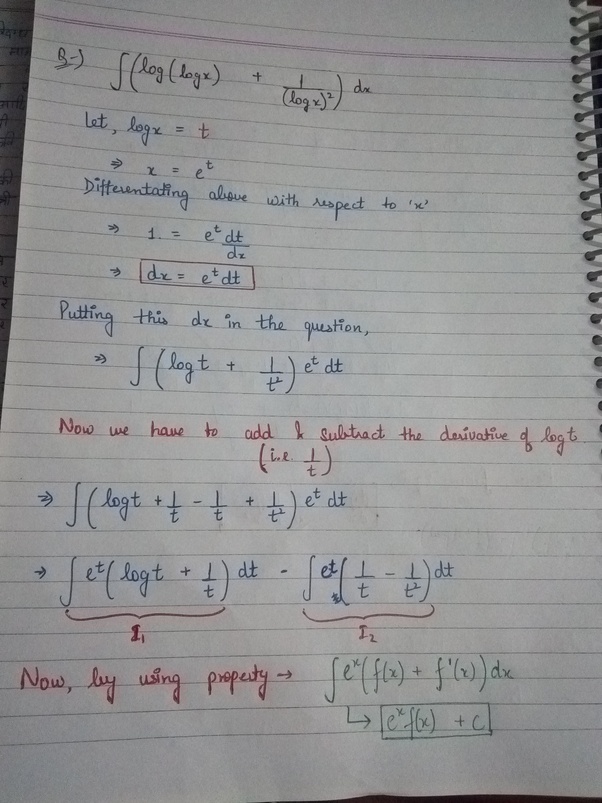 Q-) ∫(log(logx) + 1/(logx)²) dx
Let, logx = t
⇒ x = eᵗ
Differentating above with respect to 'x'
⇒ 1. = eᵗ dt/dx
⇒ dx = eᵗdt
Putting this dx in the question,
⇒ ∫(logt + 1/t²) eᵗ dt
Now we have to add & subtract the derivative of logt
(i.e 1/t)
⇒ ∫(logt + 1/t - 1/t + 1/t²) eᵗ dt
⇒ ∫eᵗ(logt + 1/t) dt - ∫eᵗ(1/t - 1/t²)dt
I₁ I₂
Now, by using property → ∫eˣ(f(x) + f'(x))dx
↳ eˣf(x) + C